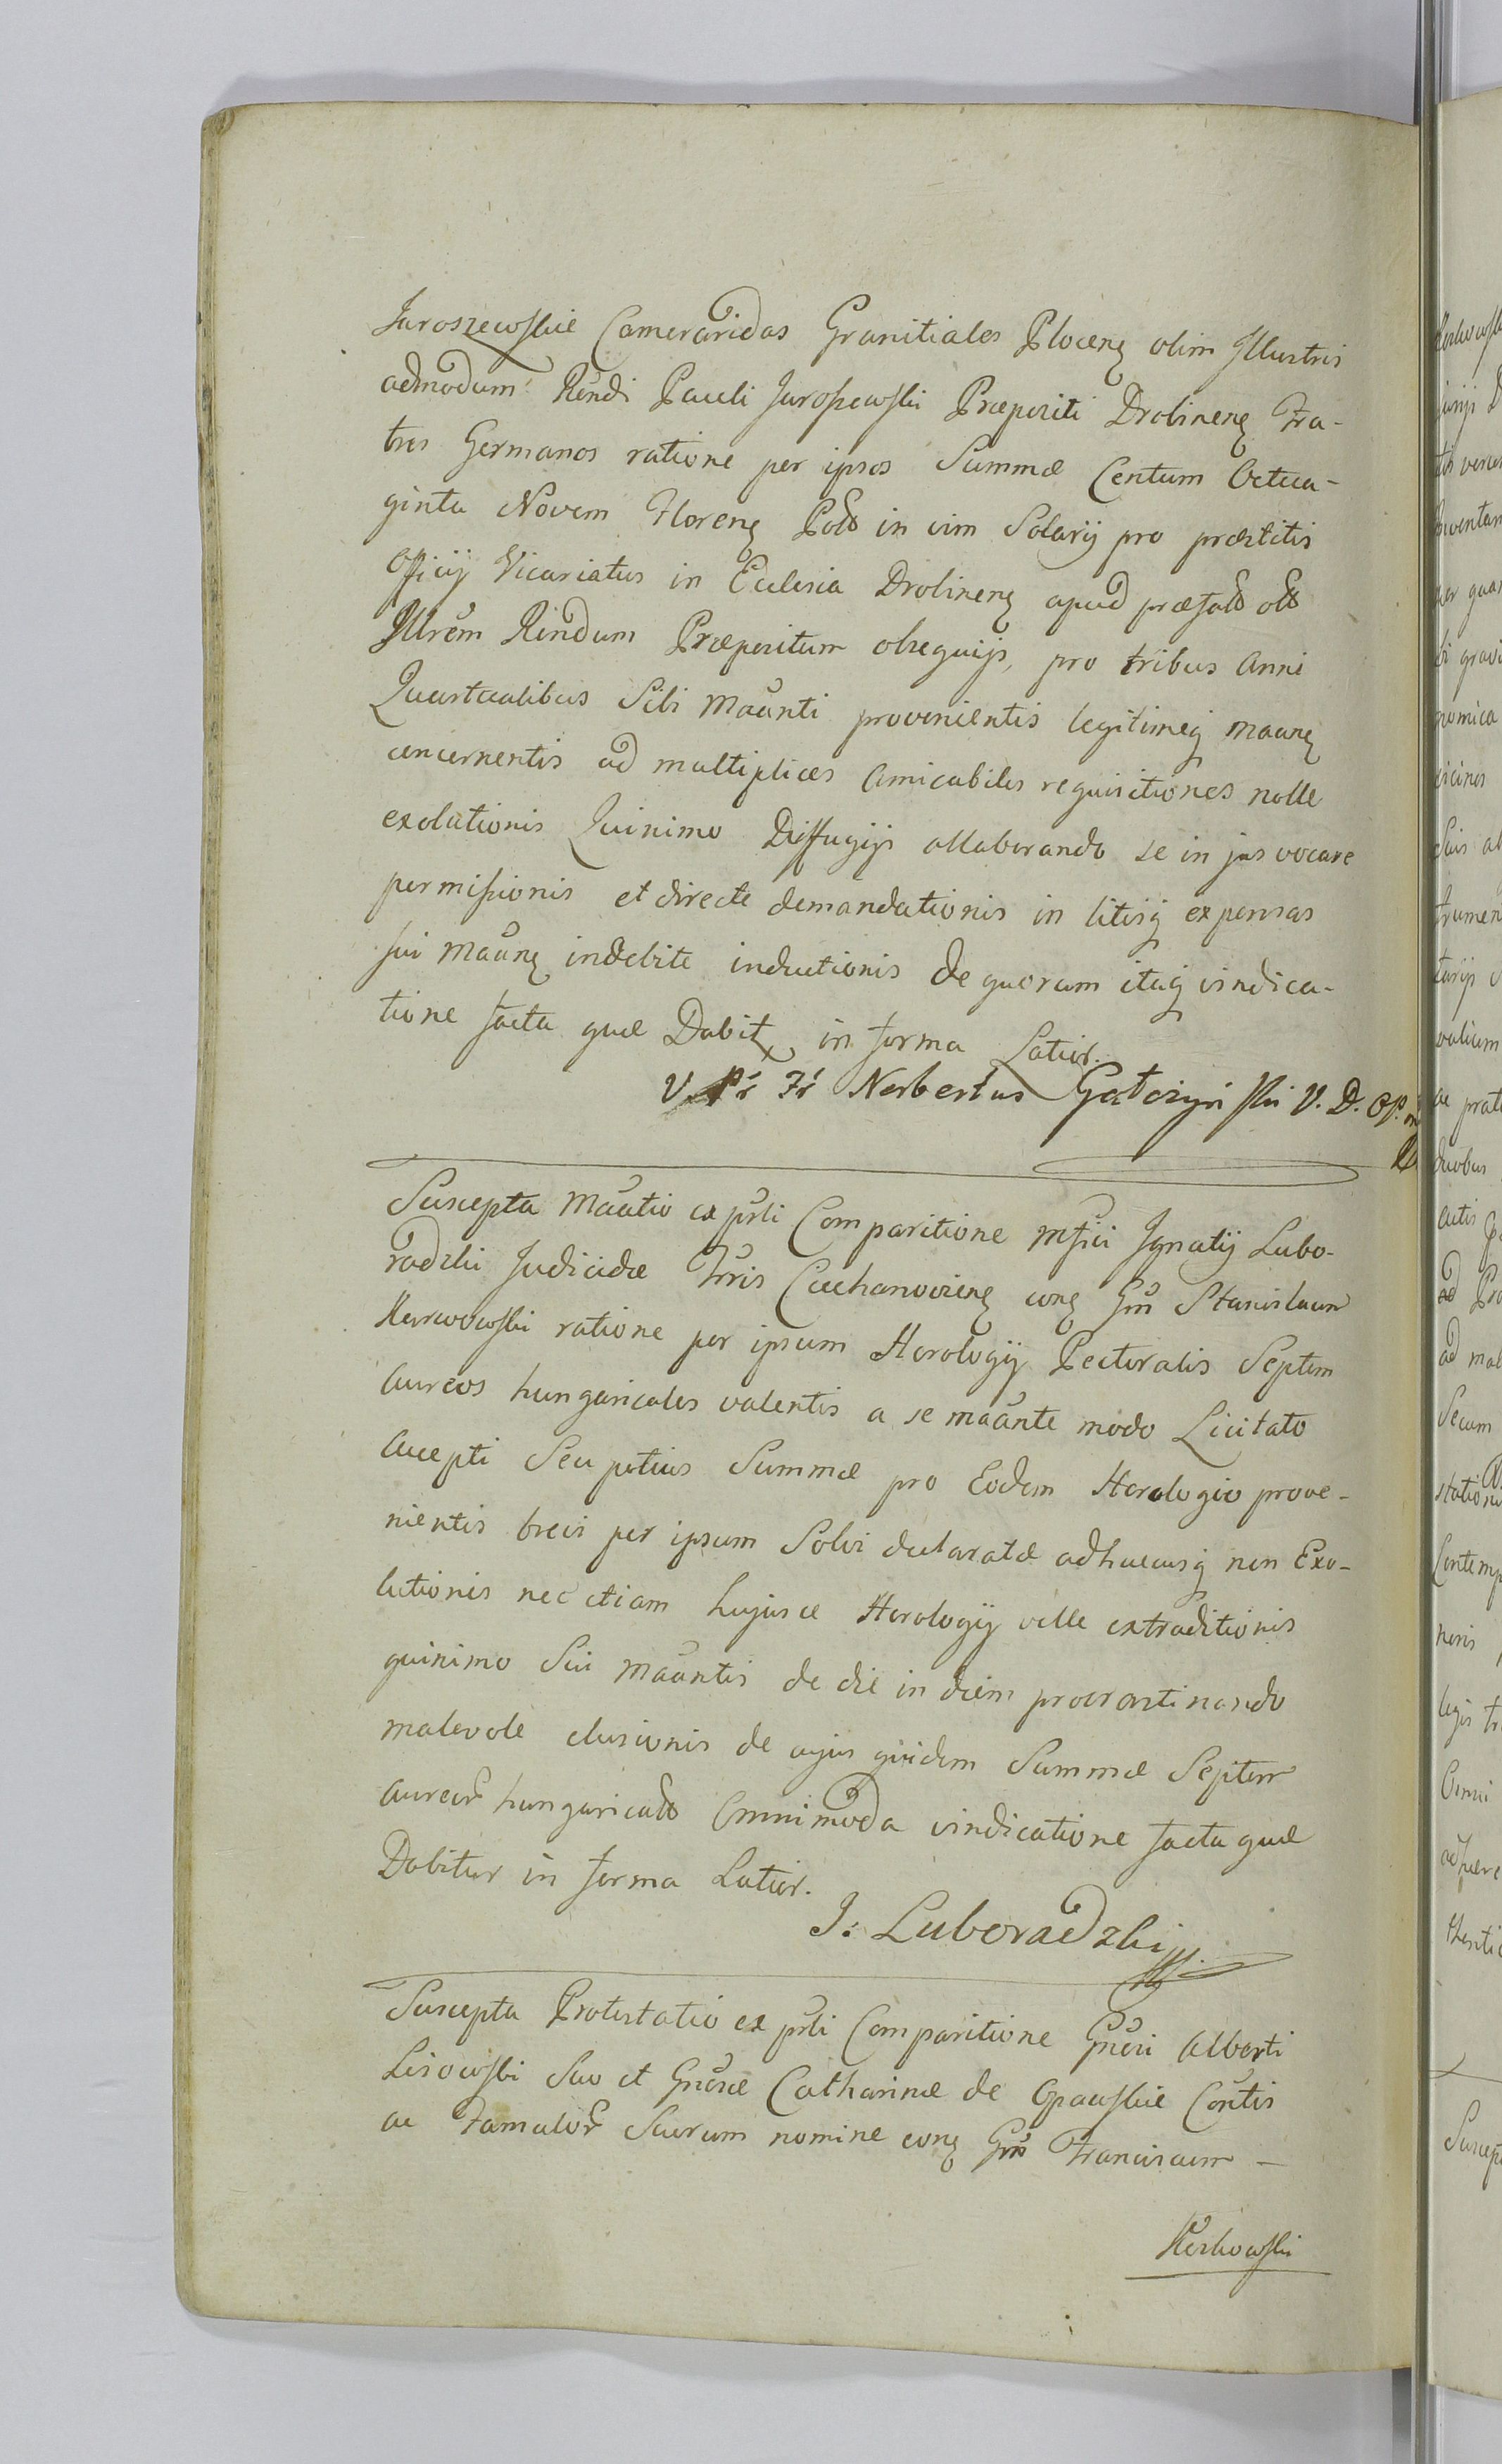 Jaroszewskie Cameraridas Granitiales Plocens olim Illustris
admodum Rndi Pauli Jaroszewski Præpositi Drobinens Fra-
tres Germanos ratione per ipsos Summæ Centum Octua-
ginta Novem Florens Pold in vim Solarij pro præstitis
Officij Vicariatus in Ecclesia Drobinens apud præfatt olt
Illrem Rindum Præpositum obsequijs, pro tribus Anni
Quartualibus Sibi Maanti provenientis legitimeq maans
concernentis ad multiplices Amicabiles requisitiones nolle
exolutionis Quinimo Diffugijs allaborando se in jus vocare
permissionis et directe demandationis in litisq expensas
sui Maans indebite inductionis de quorum itaq vindica-
tione facta quæ Dabitz in forma Latior.
V. Pr Fr Norbertus Gatczynski V. D. OP. m
Suscepta Maatio ex prsti Comparitione Mfici Ignatij Lubo-
radzki Judicidæ Trris Ciechanoviens cons Gm Stanislaum
Karwowski ratione per ipsum Horologij Pectoralis Septem
Aureos hungaricales valentis a se maante modo Licitato
Accepti Seu potius Summæ pro Eodem Horologio prove-
nientis brevi per ipsum Solvi declaratæ adhucusq non Exo-
lutionis nec etiam hujusce Horologij velle extraditionis
quinimo Sui Maantis de die in diem procrastinando
malevole elusionis de cujus quidem Summæ Septem
Aureor hungaricalt Omnimoda vindicatione facta quæ
Dabitur in forma Latior.
J: Luboradzki
Suscepta Protestatio ex prsti Comparitione Gnrosi Alberti
Lisowski Suo et Gnrosæ Catharinæ de Opawskie Contis
ac Famulor Suorum nomine cons Gm Franciscum -
Koskowski